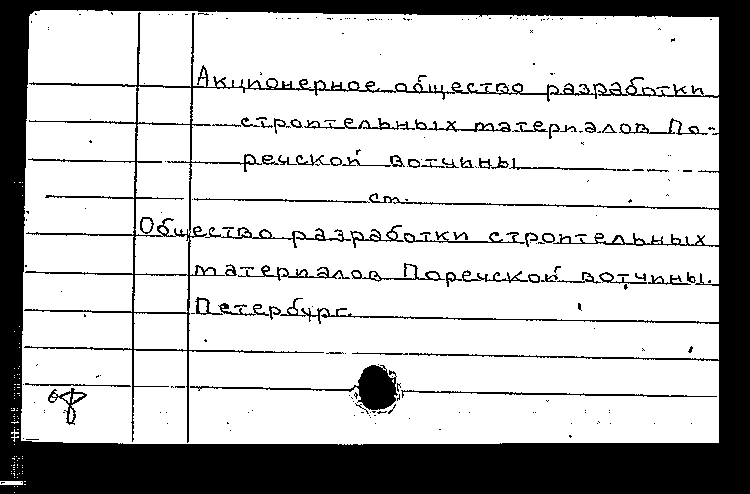 Акционерное общество разработки
строительных материалов По-
речской вотчины
см.
Общество разработки строительных
материалов Поречской вотчины.
Петербург.